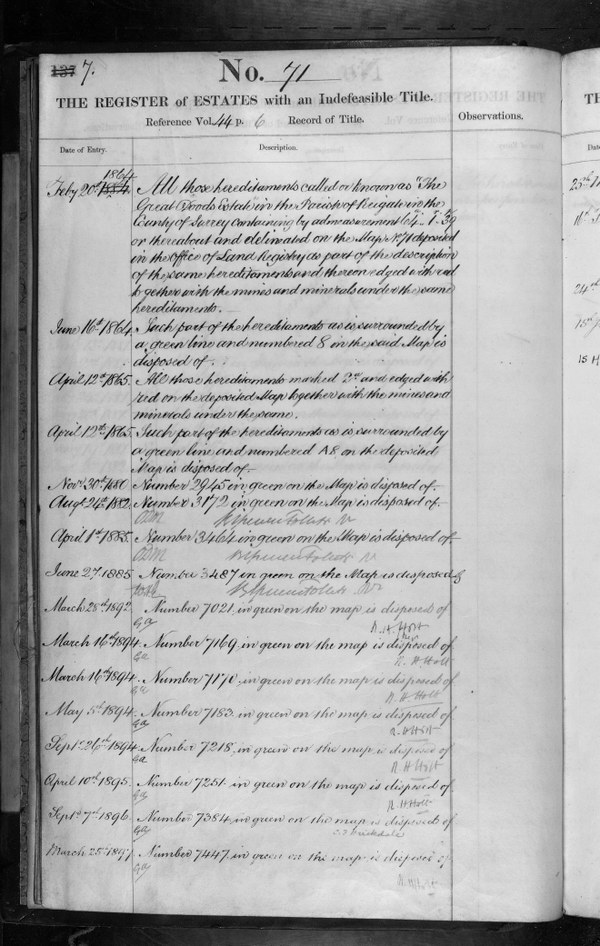 137 7.
No. 71
THE REGISTER of ESTATES with an Indefeasible Title.
Reference Vol. 44 p. 6 Record of Title.
Observations.
Date of Entry.
Description.
1864
Feby 20th All those hereditaments called or known as "The
Great Doods Estate" in the Parish of Reigate in the
County of Surrey containing by admeasurement 64. 1. 39
or thereabout and deliniated on the Map No. 71 deposited
in the Office of Land Registry as part of the description
of the same hereditaments and thereon edged with red
together with the mines and minerals under the same
hereditaments.
June 16th 1864. Such part of the hereditaments as is surrounded by
a green line and numbered 8 in the said Map is
disposed of.
April 12th 1865. All those hereditaments marked 2nd and edged with
red on the deposited Map together with the mines and
minerals under the same.
April 12th 1865. Such part of the hereditaments as is surrounded by
a green line and numbered A8 on the deposited
Map is disposed of.
Novr 30th 1880. Number 2945 in green on the Map is disposed of.
Augt 24th 1882. Number 3172 in green on the Map is disposed of.
April 1st 1885. Number 3464 in green on the Map is disposed of.
June 27 1885 Number 3487 in green on the Map is disposed of
March 28th 1892. Number 7021, in green on the map is disposed of
R. H. Holt
March 16th 1894. Number 7169, in green on the map is disposed of
R. H. Holt
March 16th 1894. Number 7170, in green on the map is disposed of
R. H. Holt
May 5th 1894. Number 7183, in green on the map is disposed of
R. H. Holt
Septr 26th 1894. Number 7218, in green on the map, is disposed of
R. H. Holt
April 10th 1895. Number 7251, in green on the map is disposed of
R. H. Holt
Septr 7th 1896. Number 7384, in green on the map is disposed of
March 25th 1897. Number 7447, in green on the map is disposed of
R. H. Holt